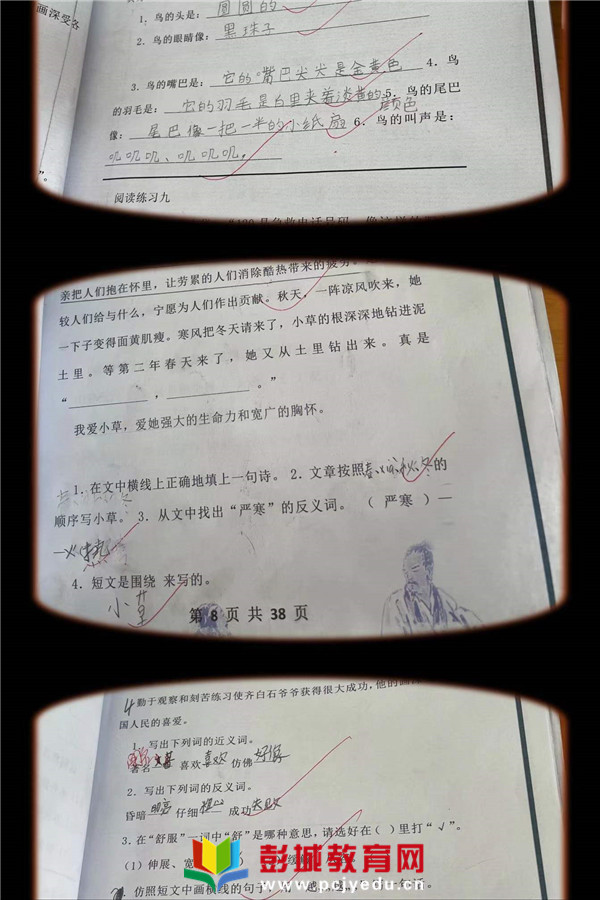 画深受各
1. 鸟的头是：圆圆的
2. 鸟的眼睛像：黑珠子
3. 鸟的嘴巴是：它的嘴巴尖尖是金黄色 4. 鸟
的羽毛是：它的羽毛是白里夹着淡黄的 5. 鸟的尾巴
颜色
像：尾巴像一把一半的小纸扇 6. 鸟的叫声是：
叽叽叽、叽叽叽，
阅读练习九
亲把人们抱在怀里，让劳累的人们消除酷热带来的疲劳。
较人们给与什么，宁愿为人们作出贡献。秋天，一阵凉风吹来，她
一下子变得面黄肌瘦。寒风把冬天请来了，小草的根深深地钻进泥
土里。等第二年春天来了，她又从土里钻出来。真是
“ ， 。”
我爱小草，爱她强大的生命力和宽广的胸怀。
1. 在文中横线上正确地填上一句诗。 2. 文章按照春夏秋冬的
顺序写小草。 3. 从文中找出“严寒”的反义词。 （ 严寒 ）—
—
4. 短文是围绕 来写的。
小草
第 8 页 共 38 页
4 勤于观察和刻苦练习使齐白石爷爷获得很大成功，他的画
国人民的喜爱。
1. 写出下列词的近义词。
著名 喜欢 喜欢 仿佛 好像
2. 写出下列词的反义词。
昏暗 明亮 仔细 粗心 成功 失败
3. 在“舒服”一词中“舒”是哪种意思，请选好在（ ）里打“√”。
（1）伸展、宽
仿照短文中画横线的句子，
彭城教育网
www.pcjyedu.cn